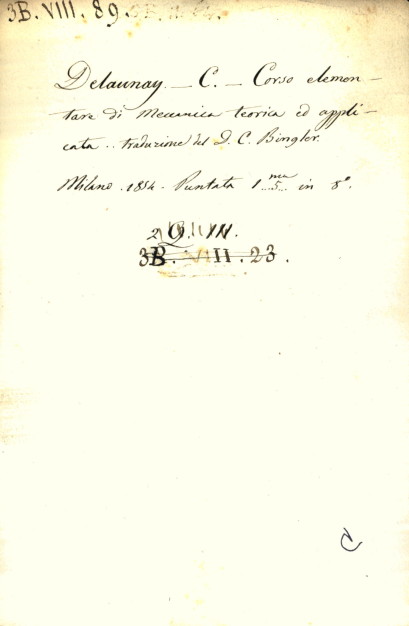 3B. VIII. 89.
Delaunay – C. – Corso elemen-
tare di Meccanica teorica ed appli-
cata.. traduzione del D. C. Bingler.
Milano. 1854. Puntata 1.ma 5.. in 8°.
2 Q. III.
3B. VIII. 23.
C